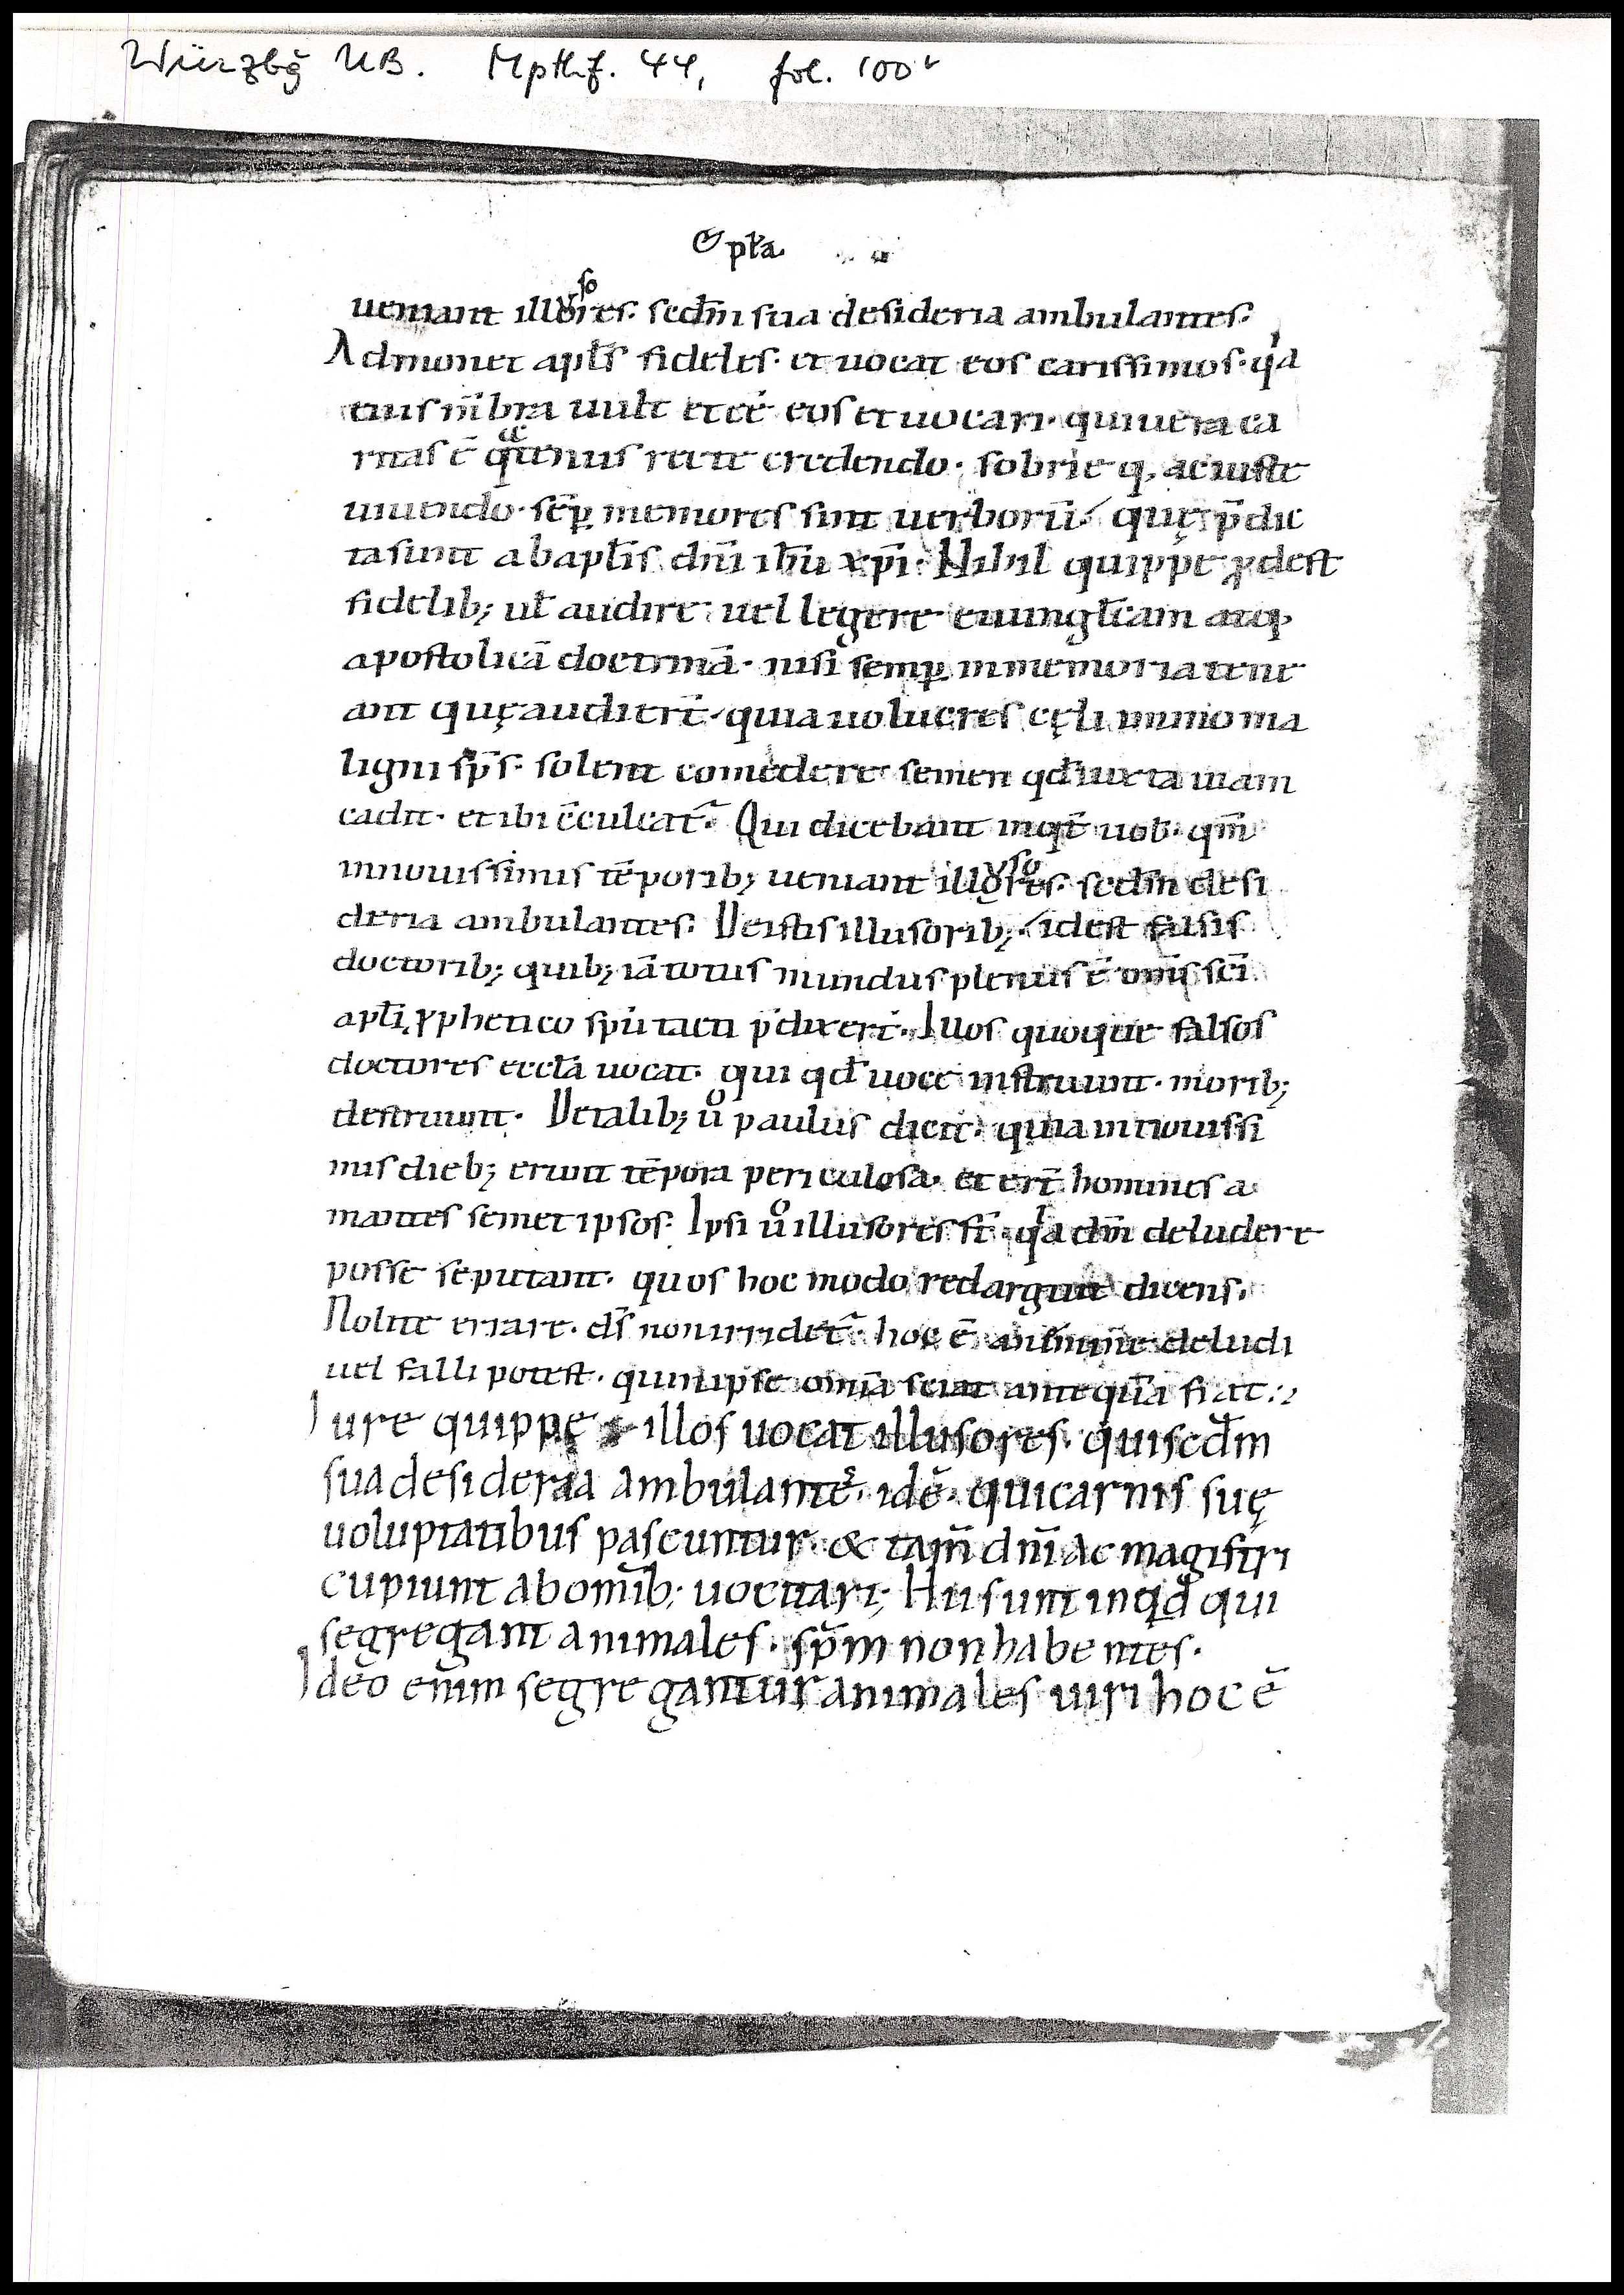 Würzbg UB. Mpthf. 44, fol. 100v
Ep̄ta
ueniant illuſores. sedm̄ sua desideria ambulantes.
Admonet apłs fideles. et uocat eos carissimos. qia
eius m̄bra uult et eē eos et uocari. qui uera ca
ritas ē qatenus recte credendo. sobrie q, ac iuste
uiuendo. sēp memores sint uerborū. quę p̄dic
ta sunt ab aptis dn̄i ih̄u xp̄i. Nihil quippe ꝓdest
fidelib; uł audire uel legere euuangłicam atq,
apostolicā doctrinā. nisi semp in memoria tene
ant quę audierīt. quia uolucres cęli immo ma
ligni sp̄s. solent comedere semen qd̄ iuxta uiam
cadit. et ibi c̄culcat̄. Qui dicebant inqt̄ uob. qm̄
in nouissimis tēporib; ueniant illusores. sedm̄ desi
deria ambulantes. De istis illusorib; idest falsis
doctorib; quib; iā totus mundus plenus ē om̄s sc̄i
apłi ꝓphetico sp̄u tacti p̄dixer̄. Illos quoque falsos
doctores eccła uocat. qui qd̄ uoce instruunt. morib;
destruunt. De talib; u̇ paulus dicit. quia in nouissi
mis dieb; erunt tēpora periculosa. et er̄t homines a
mantes semet ipsos. Ipsi u̇ illusores st̄. qia dm̄ deludere
posse se putant. quos hoc modo redarguit dicens.
Nolite errare. ds̄ non irridet̄. hoc ē a nemine deludi
uel falli potest. quin ipse omīa sciat antequā fiat.
Iure quippe illos uocat illusores. qui sedm̄
sua desideria ambulantes. idē. qui carnis suę
uoluptatibus pascuntur. & tam̄ dn̄i ac magistri
cupiunt ab omīb; uocitari; Hii sunt inqd̄ qui
segregant animales. sp̄m non habentes.
Ideo enim segregantur animales uiri hoc ē